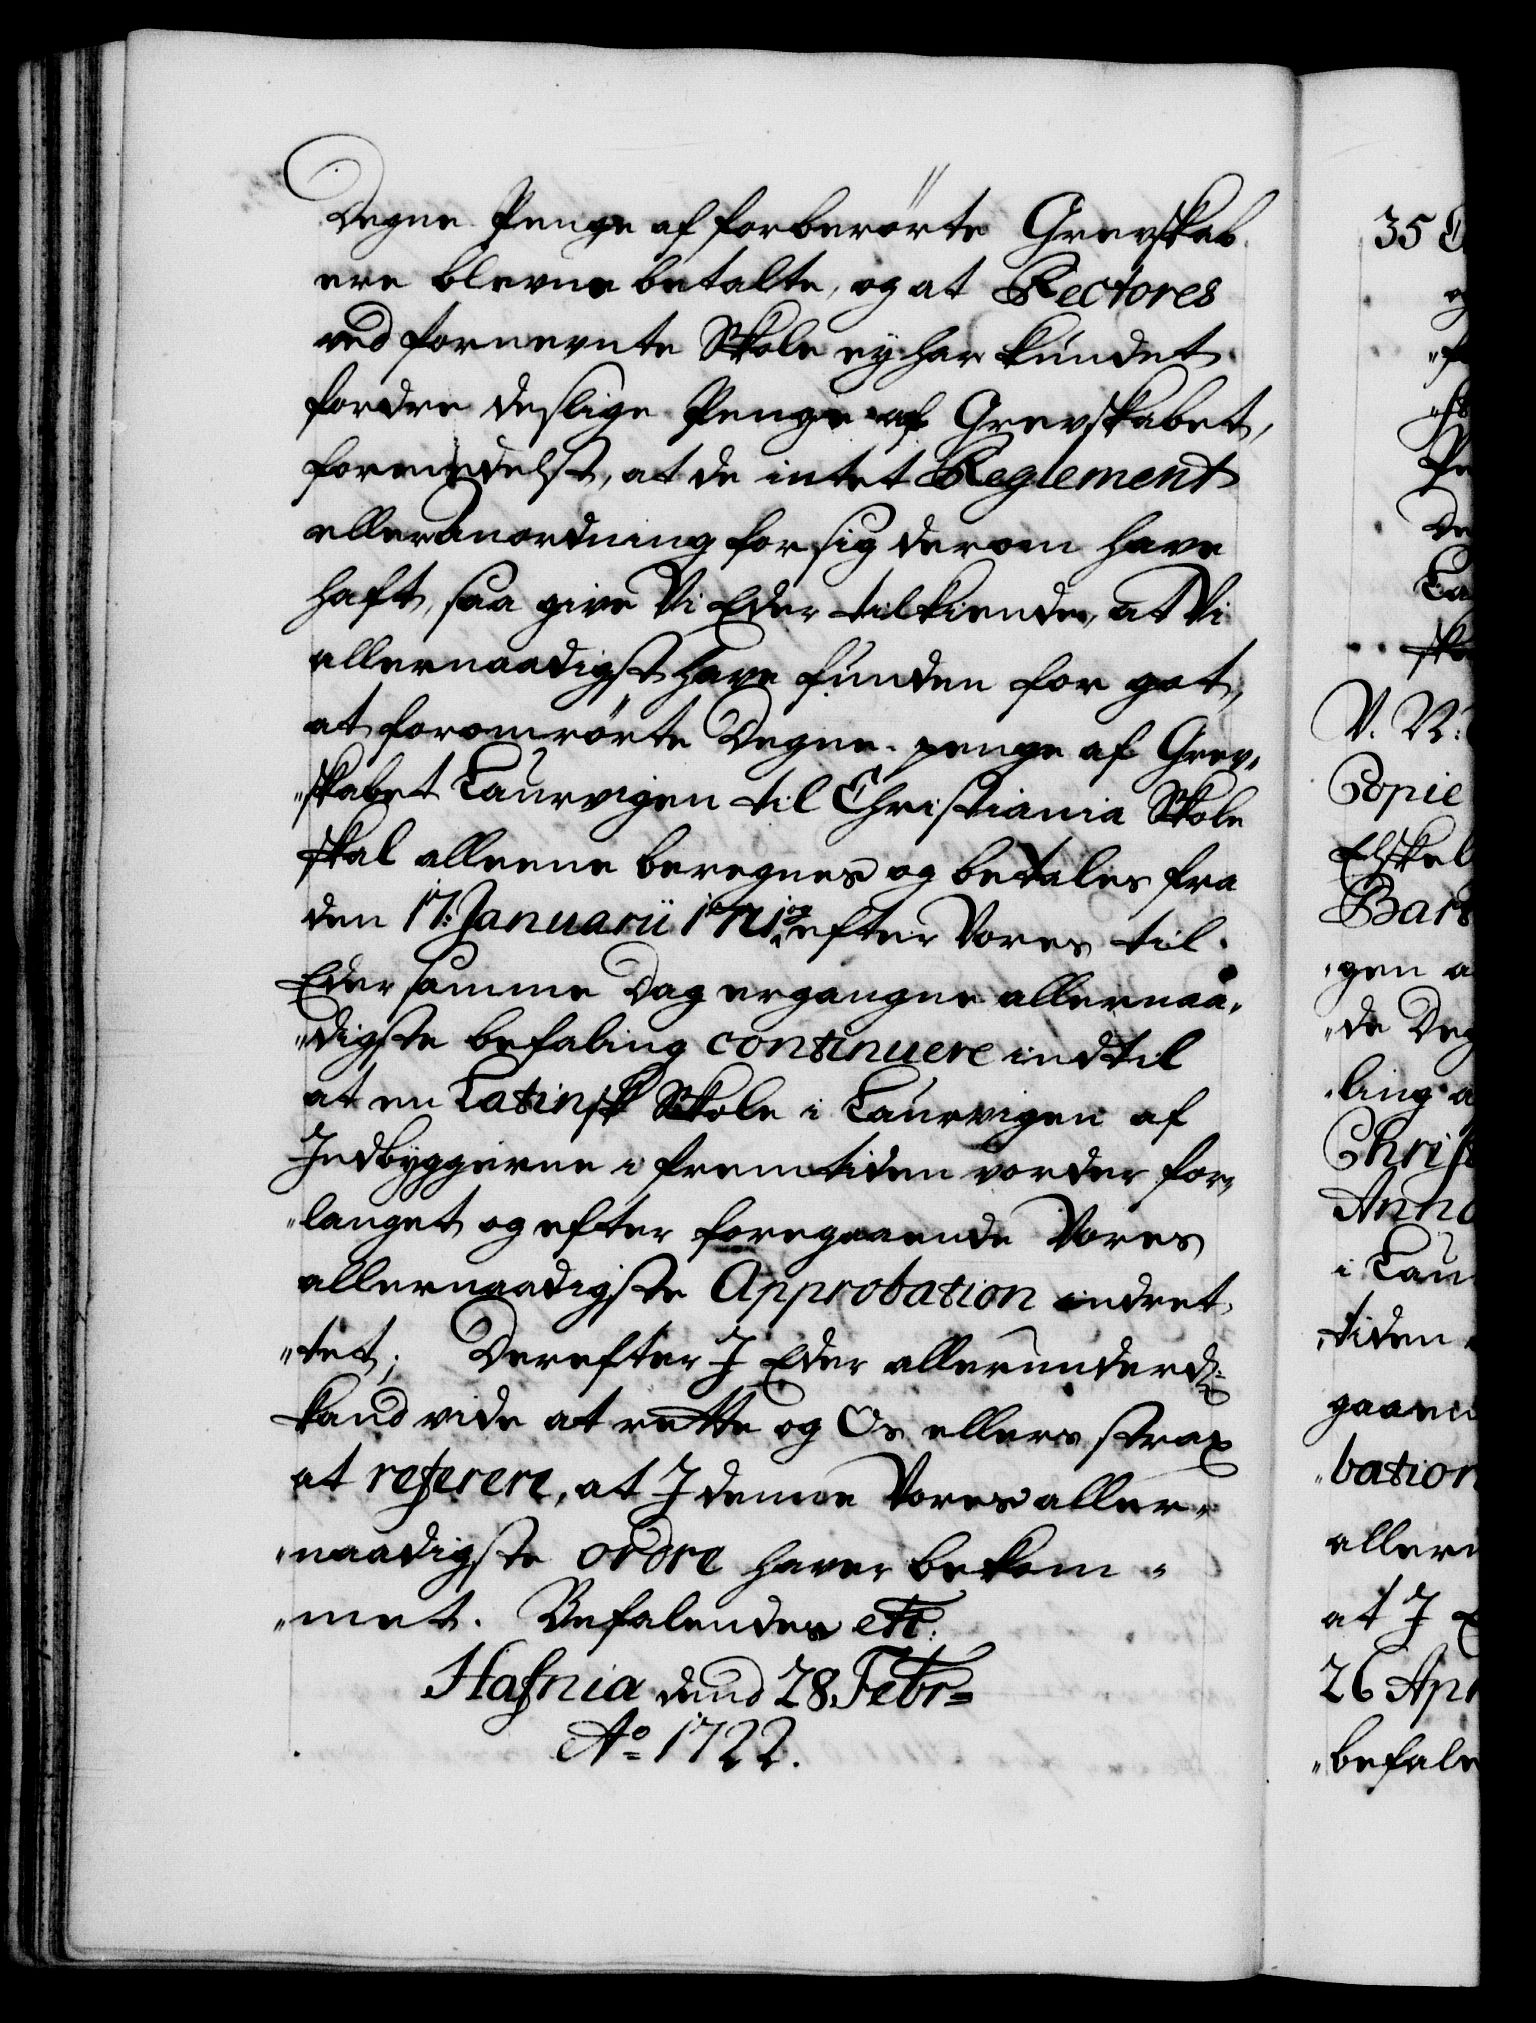 Degne Penge af forberørte Grevskab
ere blevne betalte, og at Rectores
ved fornevnte Skole ey har kundet
fordre deslige Penge af Grevskabet,
formedelst, at de intet Reglement
eller anordning for sig derom have
haft, saa give Vi Eder tilkiende, at Vi
allernaadigst have funden for got,
at foromrørte Degne-penge af Grev„
„skabet Laurvigen til Christiania Skole
skal alleene beregnes og betales fra
den 17: Januarii 1721 og efter Vores til
Eder samme Dag ergangne allernaa„
„digste befaling continuere indtil
at en Latinsk Skole i Laurvigen af
Indbyggerne i fremtiden vorder for„
„langet og efter foregaaende Vores
allernaadigste Approbation indret„
„tet; Derefter I Eder allerunderd:
kand vide at rette og Os ellers strax
at referere, at I denne Vores aller„
„naadigste ordre haver bekom„
„met. Befalendes etc:
Hafnia dend 28. Febr=
Ao= 1722.
35
V. R:
Copie
Elskel
Bart
„gen a
„de Deg
„ling a
Chris
Anno
i Lau
„tiden
gaaen
„bation
allern
at I E
26 Apr
„befale